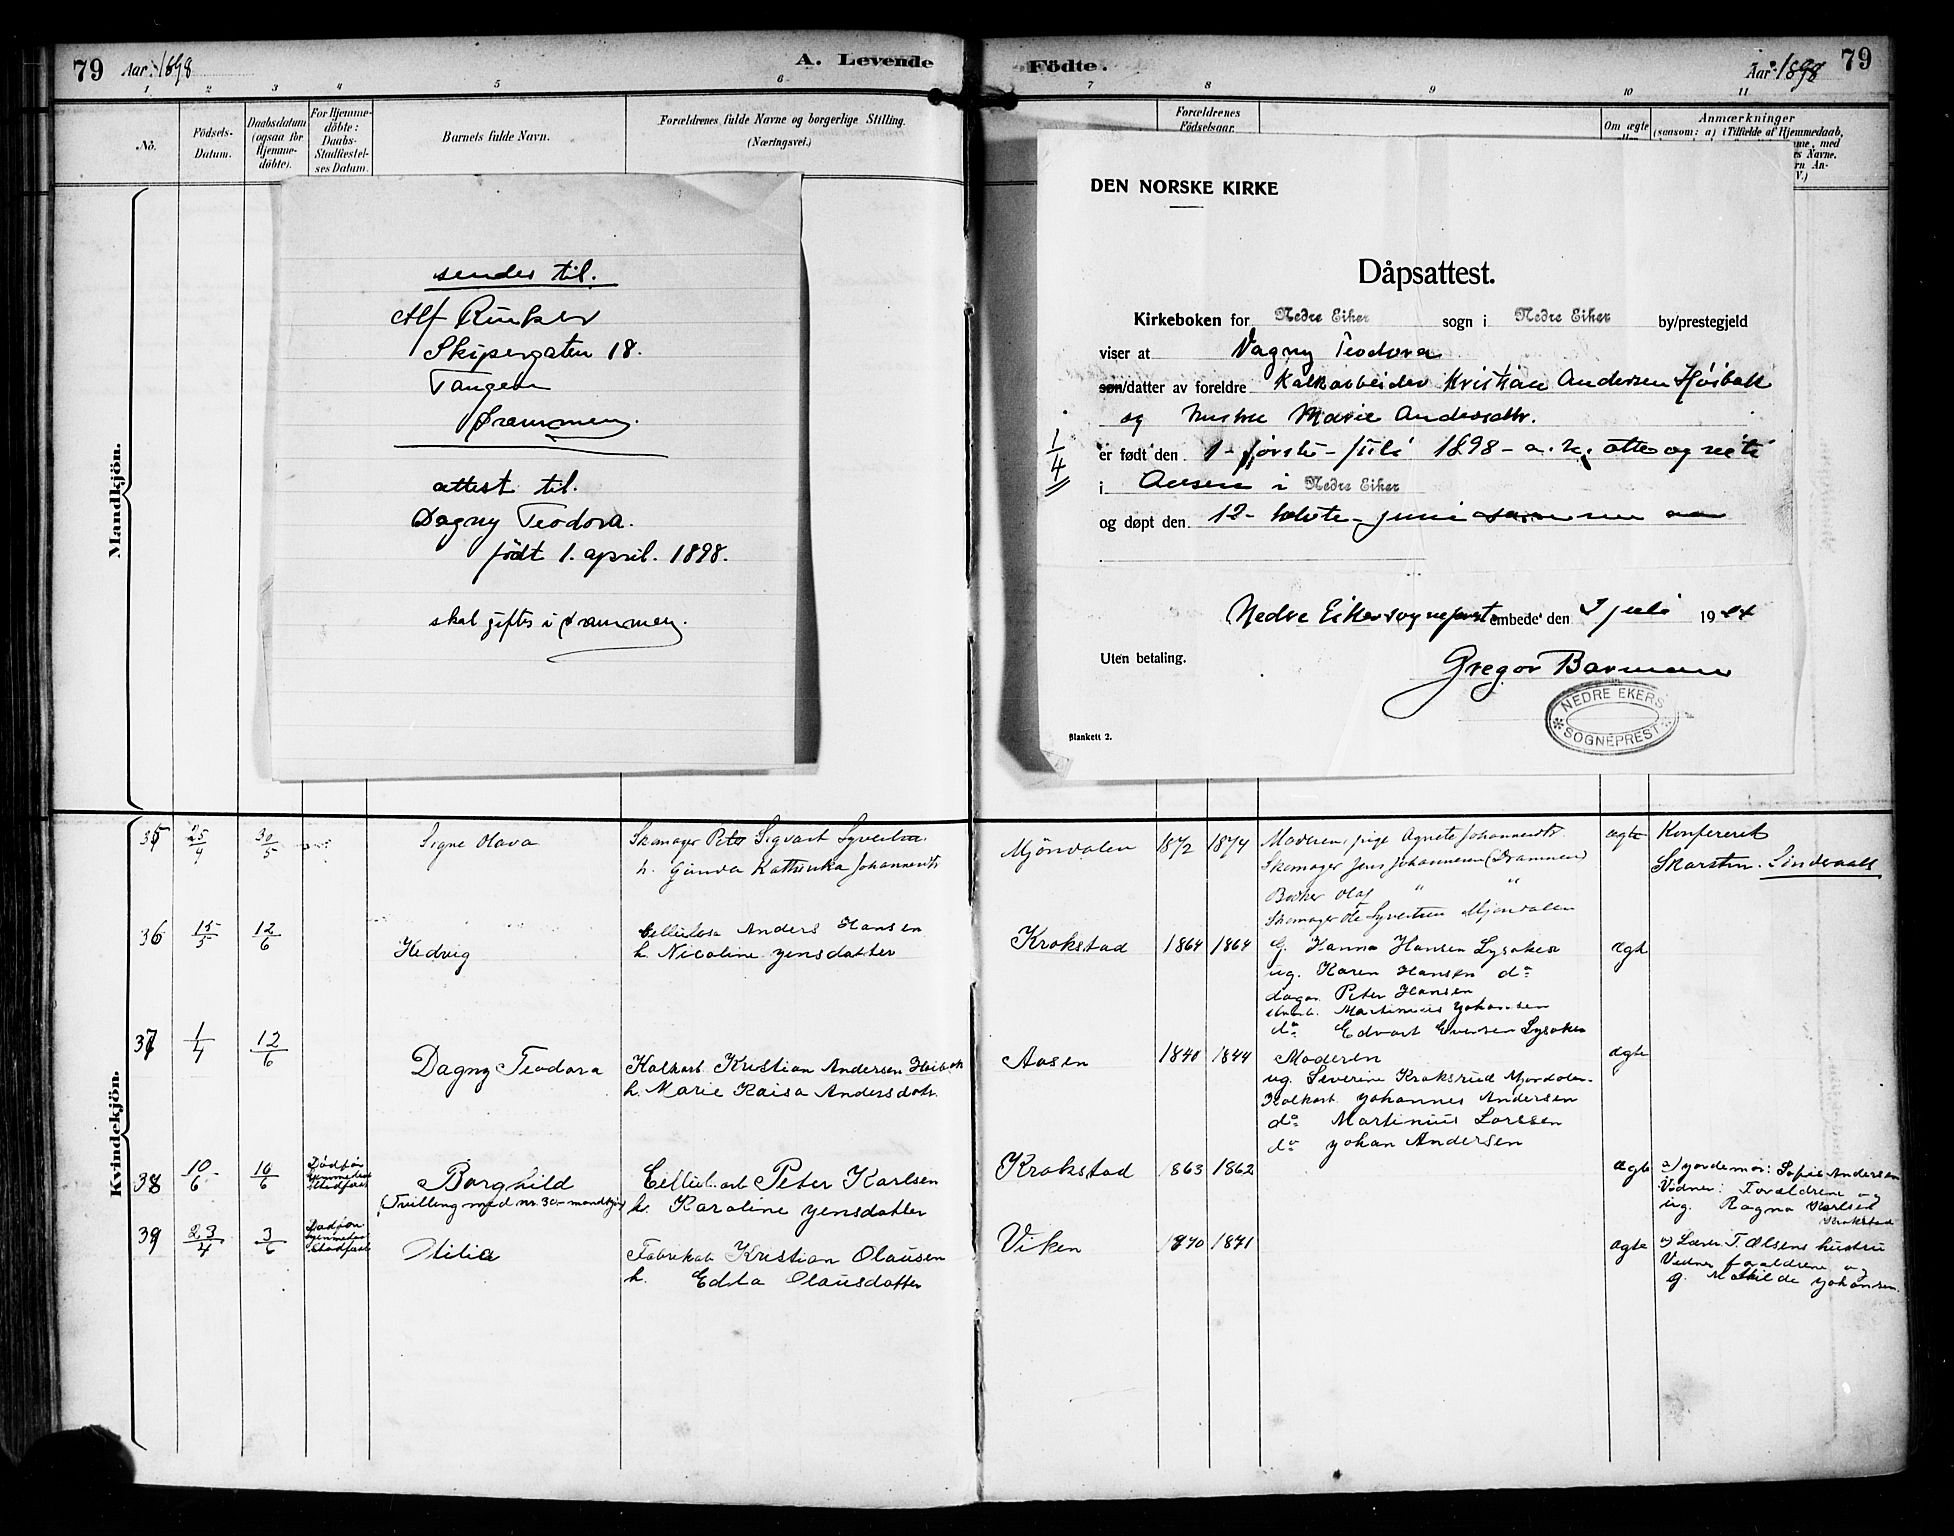 79 Aar 1898 A. Levende
1 2 3 4 5 6
No.
Födsels-
Datum.
Daabsdatum
(ogsaa for
Hjemme-
döbte).
For Hjemme-
döbte:
Daabs-
Stadfæstel-
ses Datum.
Barnets fulde Navn.
Forældrenes fulde Navne og borgerlige Stilling.
(Næringsvei.)
Mandkjön.
sendes til.
Alf
Skipergaten 18.
Tangen
Drammen.
attest til.
Dagny Teodora.
født 1. april. 1898.
skal giftes i Drammen.
Kvindekjön.
35 25/4 30/5 Signe Olava Skomager Peter Sigvart Syvertsen
h. Gunda Kathinka Johannesdtr
36 15/5 12/6 Hedvig Cellulosa Anders Hansen
h. Nicoline Jensdatter
37 1/4 12/6 Dagny Teodora Kalkarb. Kristian Andersen
h. Marie Kaisa Andersdatr.
38 10/6 10/6 Borghild Cellul. arb Peter Karlsen
(Tvilling med nr. 30 mandkjøn) h. Karoline Jensdatter
39 23/4 3/6 Otilia Fabrikab Kristian Olausen
h. Edla Olausdatter
Födte. Aar 1898 79
7 8 9 10 11
Forældrenes
Födselsaar.
Om ægte
Anmærkninger
(saasom: a) i Tilfælde af Hjemmedaab,
DEN NORSKE KIRKE
Dåpsattest.
Kirkeboken for Nedre Eiker sogn i Nedre Eiker by/prestegjeld
viser at Dagny Teodora
søn/datter av foreldre Kalkarbeider Kristian Andersen Høibak
og hustru Marie Andersdtr.
1/4
er født den 1 - første - juli 1898 - a. h. otte og niti
i Aasen i Nedre Eiker
og døpt den 12 - tolvte - juni samme aar
Nedre Eiker sogneprestembede den 3 juli 1924
Uten betaling.
Gregor Barmann
NEDRE EKERS
SOGNEPREST
Blankett 2.
Mjöndalen 1872 1874 Moderen, pige Agnete Johannesdtr. ægte Konfereret
Skomager Jens Johannesen (Drammen) Skarsten.
Bødker Olaf " "
Skomager Ole Syvertsen Mjøndalen
Krokstad 1864 1864 G. Hanna Hansen Lysaker ægte
ug. Karen Hansen do
Peter Hansen
Martinius Johansen
do Edvart Evensen Lysaker
Aasen 1840 1844 Moderen ægte
ug. Severine Kroksrud Mjøndalen
Kalkarb. Johannes Andersen
do Martinius Larssen
do Johan Andersen
Krokstad 1863 1862 ægte a) Jordemor: Sofie Andersen
Vidner: Forældrene og
ug. Ragna Karlsen
Krokstad
Viken 1870 1871 ægte a) Lærer T. Olsens hustru
Vidner forældrene og
g. Mathilde Johansen.